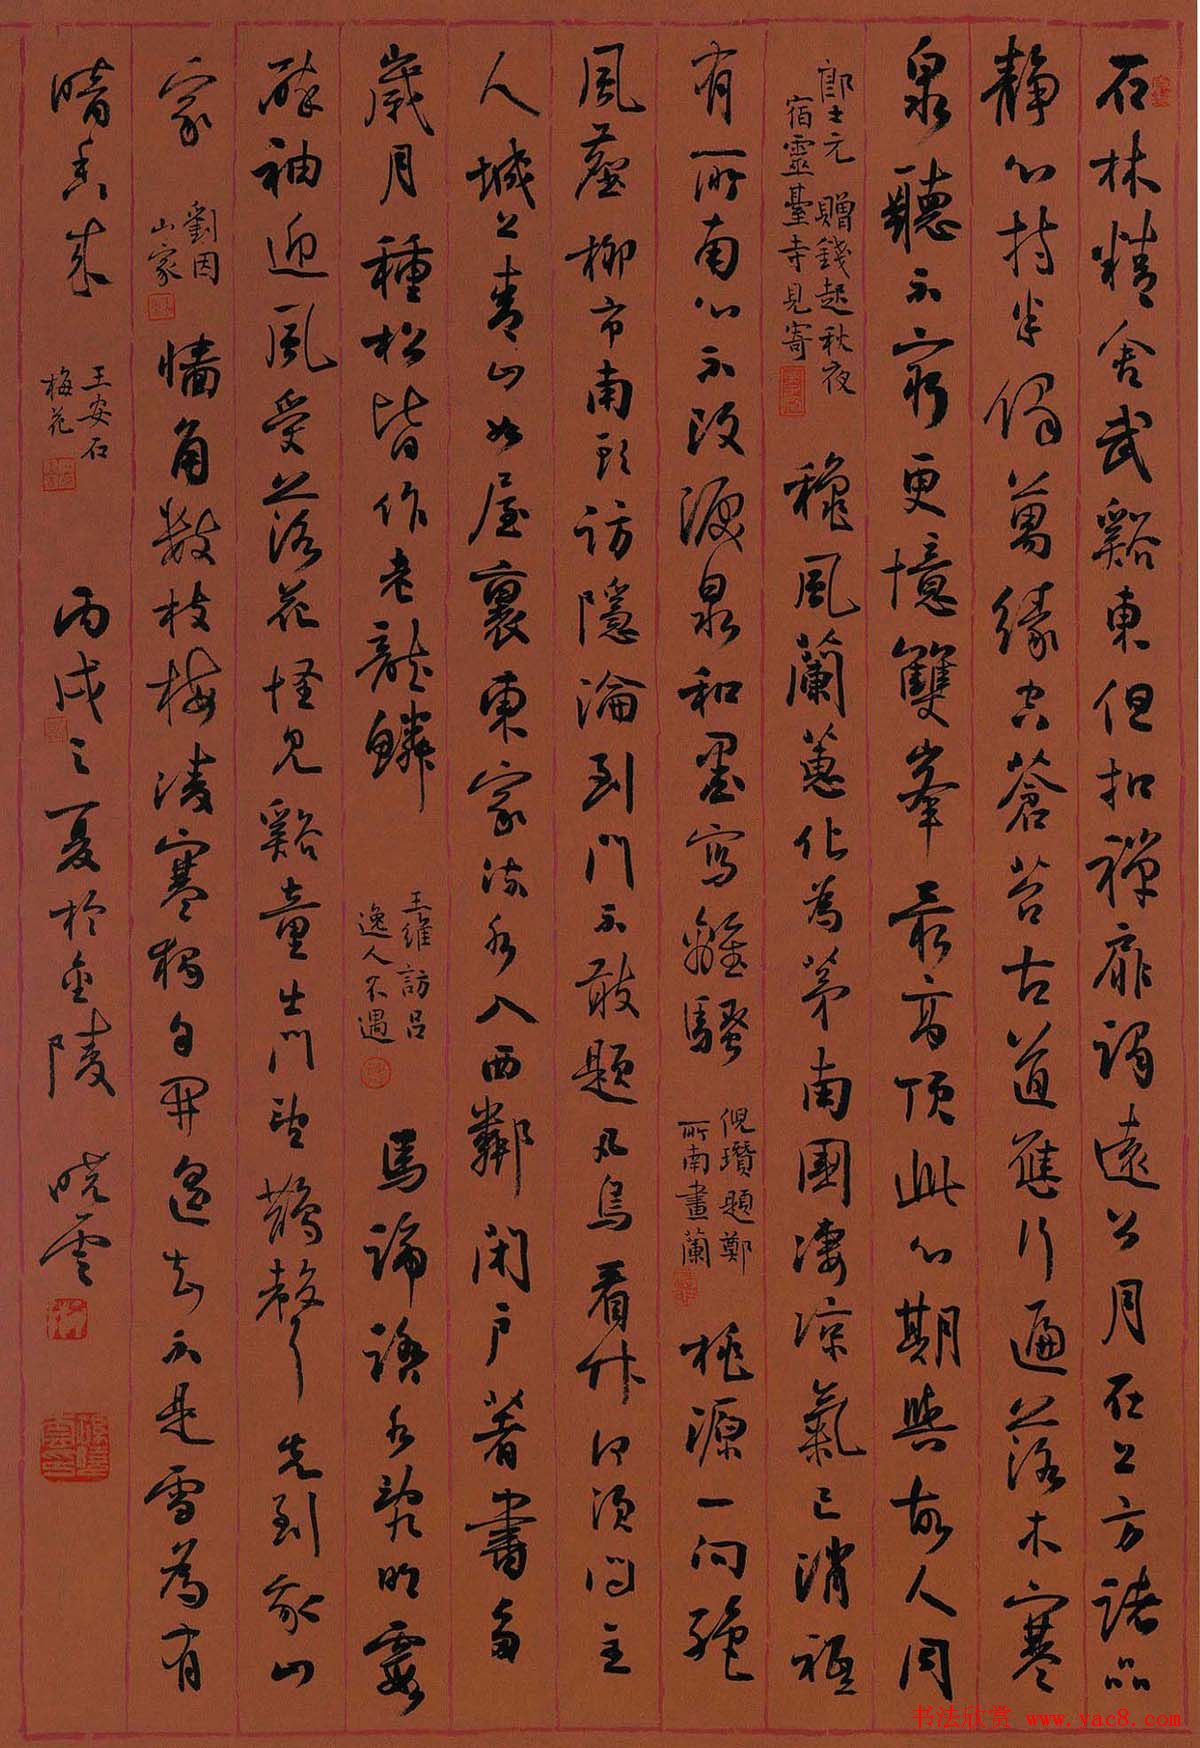 石林精舍武谿東但扣禪扉謁遠公月在上方諸品
靜心持半偈萬緣空蒼苔古道應行遍落木寒
泉聽不窮更憶雙峯最高頂此心期與故人同
郎士元 贈錢起秋夜
宿靈臺寺見寄
穐風蘭蕙化為茅南國淒涼氣已消祗
有所南心不改淚泉和墨寫離騷
倪瓚題鄭
所南畫蘭
桃源一向絕
風塵柳市南頭訪隱淪到門不敢題凡鳥看竹何須問主
人城上青山如屋裏東家流水入西鄰閉戶著書多
歲月種松皆作老龍鱗
王維 訪呂
逸人不遇
馬蹄踏水亂明霞
醉袖迎風受落花怪見谿童出門望鵲聲先到我山
家
劉因
山家
墻角數枝梅凌寒獨自開遙知不是雪為有
暗香來
王安石
梅花
丙戌之夏於金陵 曉雲
书法欣赏 www.yac8.com